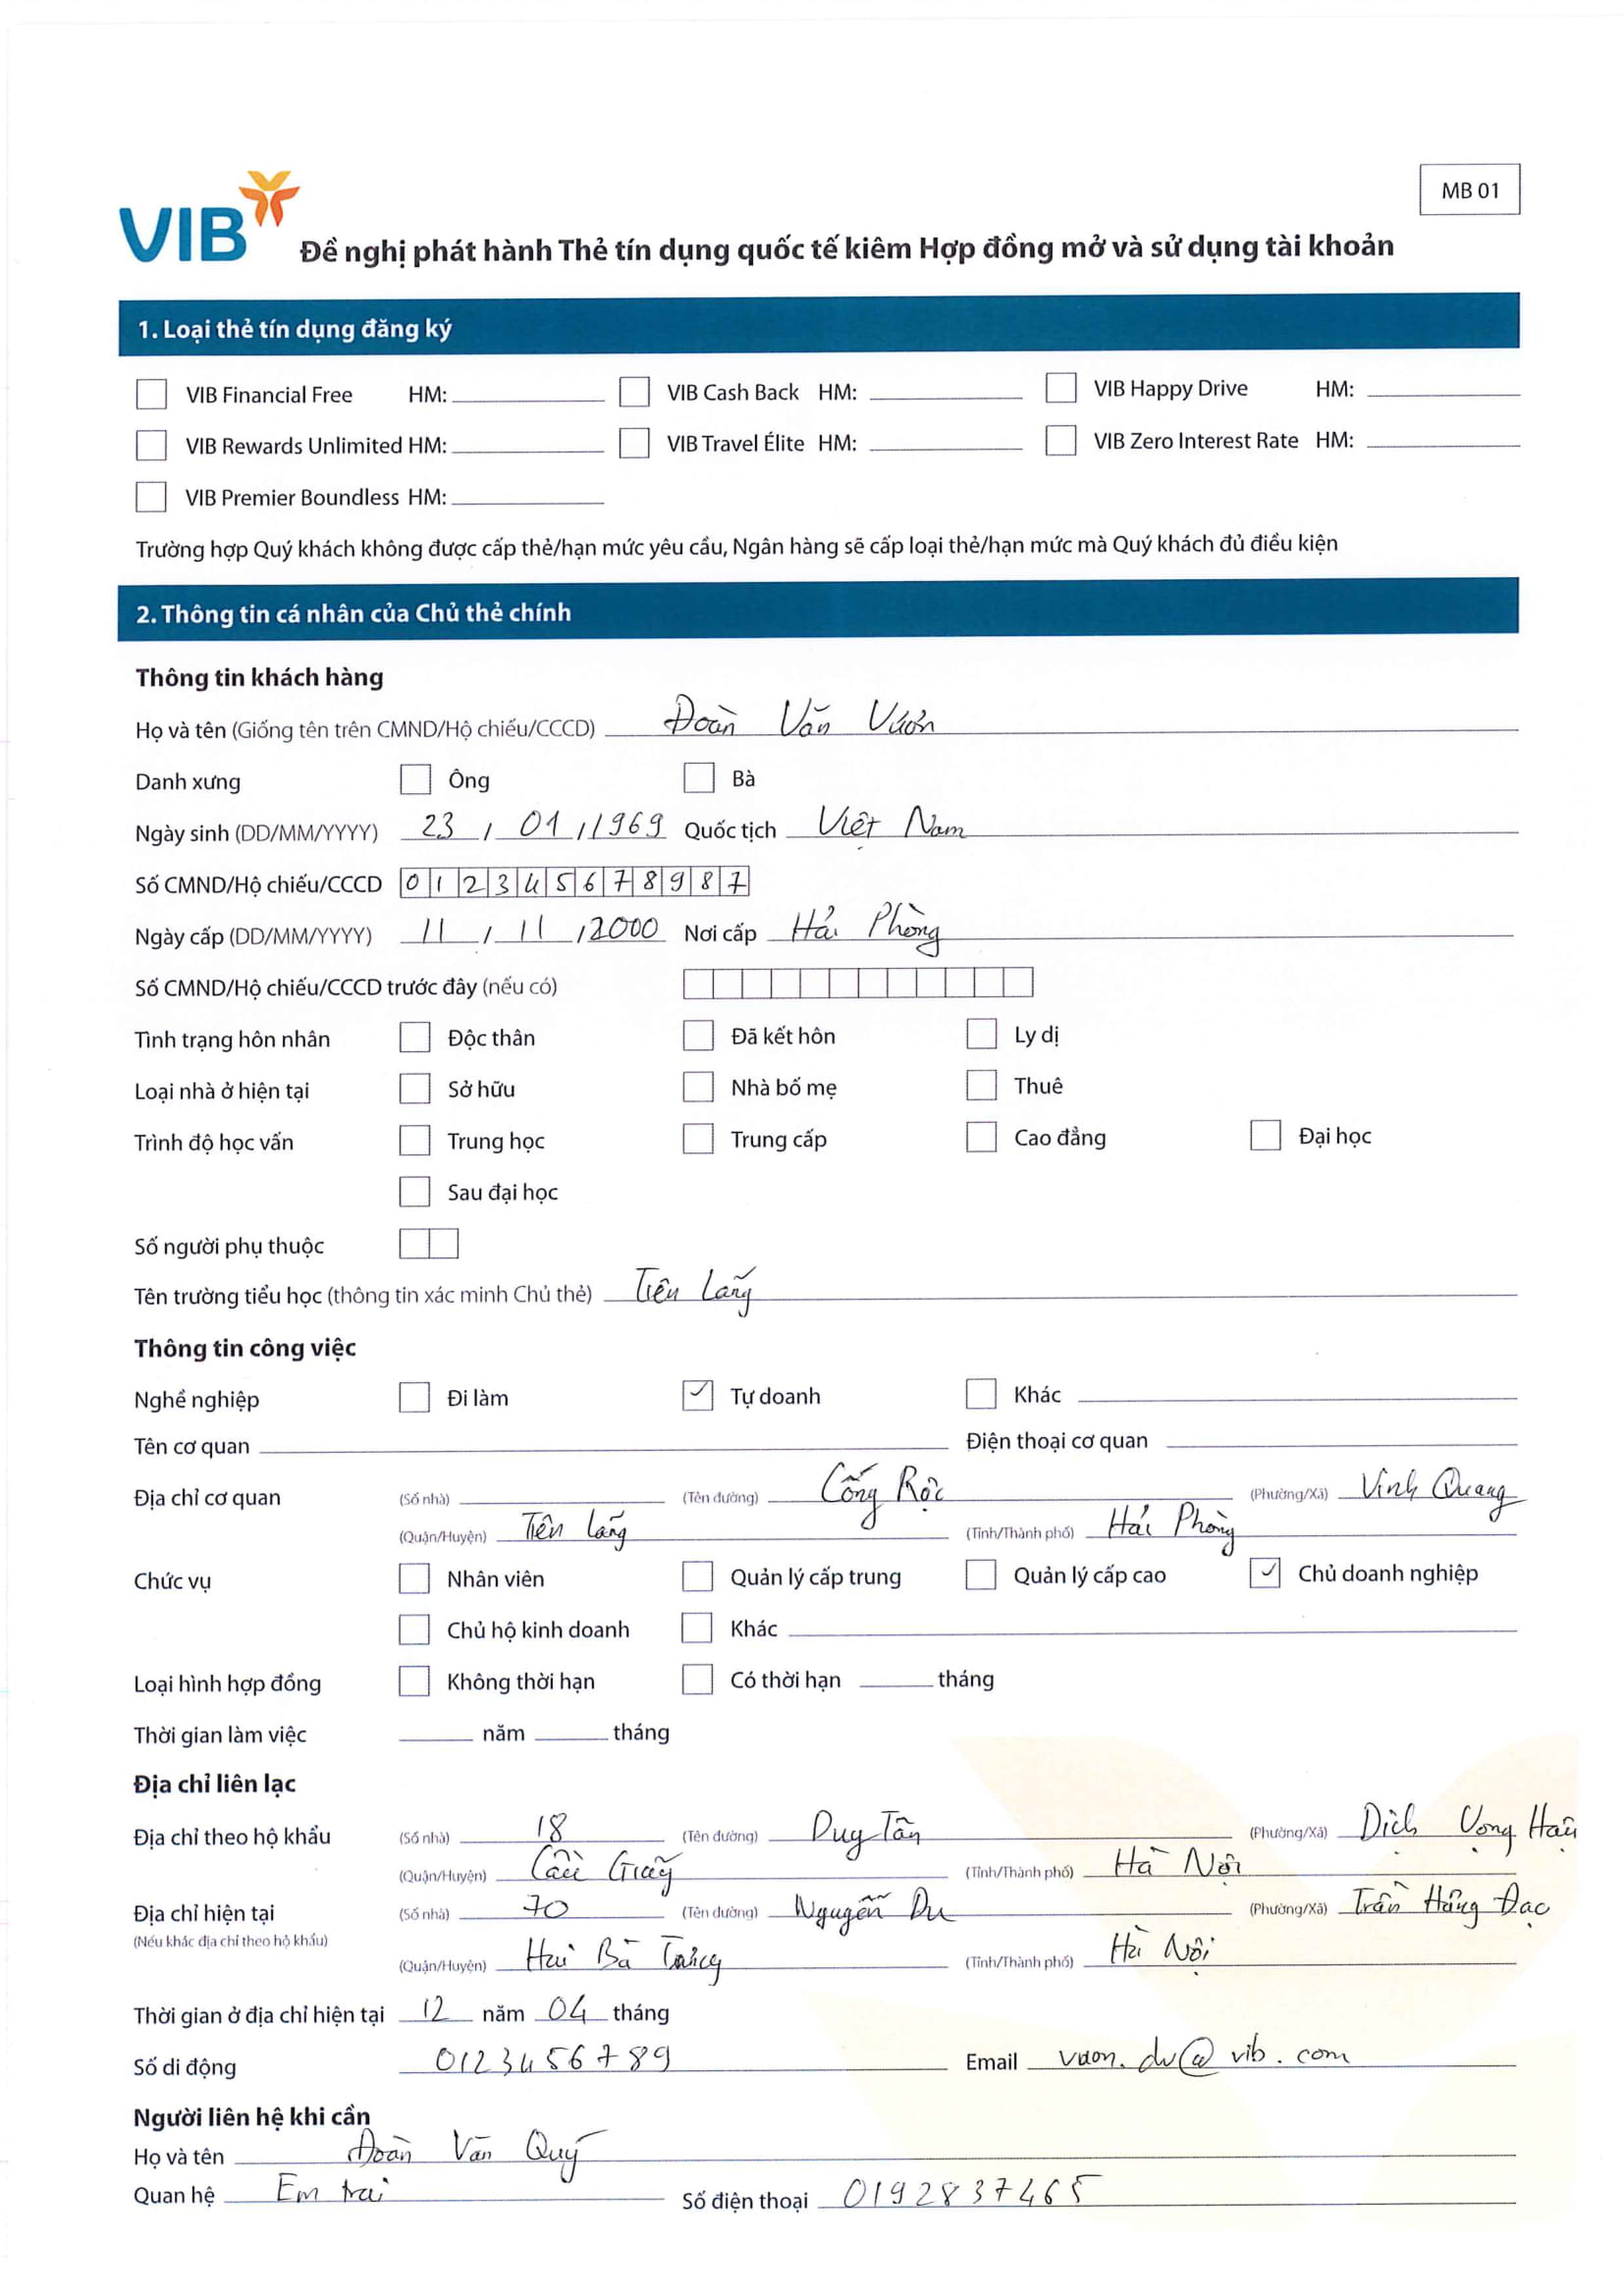 MB 01
VIB
Đề nghị phát hành Thẻ tín dụng quốc tế kiêm Hợp đồng mở và sử dụng tài khoản
1. Loại thẻ tín dụng đăng ký
VIB Financial Free HM: VIB Cash Back HM: VIB Happy Drive HM:
VIB Rewards Unlimited HM: VIB Travel Élite HM: VIB Zero Interest Rate HM:
VIB Premier Boundless HM:
Trường hợp Quý khách không được cấp thẻ/hạn mức yêu cầu, Ngân hàng sẽ cấp loại thẻ/hạn mức mà Quý khách đủ điều kiện
2. Thông tin cá nhân của Chủ thẻ chính
Thông tin khách hàng
Họ và tên (Giống tên trên CMND/Hộ chiếu/CCCD) Đoàn Văn Vươn
Danh xưng Ông Bà
Ngày sinh (DD/MM/YYYY) 23 / 01 / 1969 Quốc tịch Việt Nam
Số CMND/Hộ chiếu/CCCD 012345678987
Ngày cấp (DD/MM/YYYY) 11 / 11 / 2000 Nơi cấp Hải Phòng
Số CMND/Hộ chiếu/CCCD trước đây (nếu có)
Tình trạng hôn nhân Độc thân Đã kết hôn Ly dị
Loại nhà ở hiện tại Sở hữu Nhà bố mẹ Thuê
Trình độ học vấn Trung học Trung cấp Cao đẳng Đại học
Sau đại học
Số người phụ thuộc
Tên trường tiểu học (thông tin xác minh Chủ thẻ) Tiên Lãng
Thông tin công việc
Nghề nghiệp Đi làm Tự doanh Khác
Tên cơ quan Điện thoại cơ quan
Địa chỉ cơ quan (Số nhà) (Tên đường) Cống Rộc (Phường/Xã) Vinh Quang
(Quận/Huyện) Tiên Lãng (Tỉnh/Thành phố) Hải Phòng
Chức vụ Nhân viên Quản lý cấp trung Quản lý cấp cao Chủ doanh nghiệp
Chủ hộ kinh doanh Khác
Loại hình hợp đồng Không thời hạn Có thời hạn tháng
Thời gian làm việc năm tháng
Địa chỉ liên lạc
Địa chỉ theo hộ khẩu (Số nhà) 18 (Tên đường) Duy Tân (Phường/Xã) Dịch Vọng Hậu
(Quận/Huyện) Cầu Giấy (Tỉnh/Thành phố) Hà Nội
Địa chỉ hiện tại (Số nhà) 70 (Tên đường) Nguyễn Du (Phường/Xã) Trần Hưng Đạo
(Nếu khác địa chỉ theo hộ khẩu)
(Quận/Huyện) Hai Bà Trưng (Tỉnh/Thành phố) Hà Nội
Thời gian ở địa chỉ hiện tại 12 năm 04 tháng
Số di động 0123456789 Email vuon.dv@vib.com
Người liên hệ khi cần
Họ và tên Đoàn Văn Quý
Quan hệ Em trai Số điện thoại 0192837465